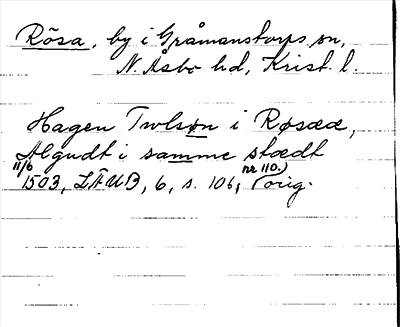 Rösa, by i Gråmanstorps sn,
N. Åsbo hd, Krist. l.
Hagen Twlsøn i Røsææ,
Algudt i samme stædt
11/6 1503, LÄUB, 6, s. 106, nr 110. orig.